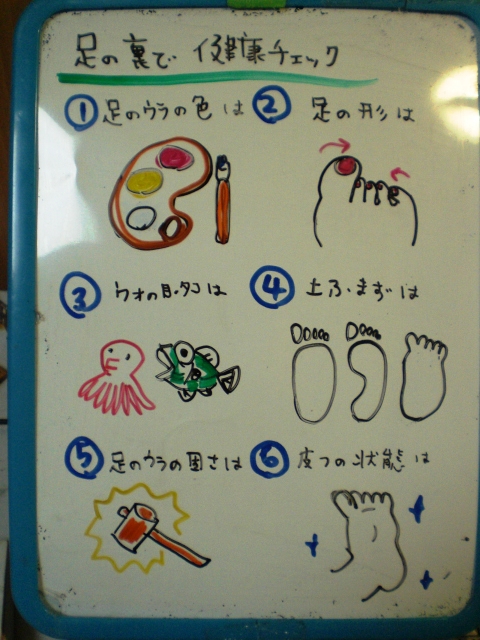 足の裏で 健康チェック
① 足のウラの色は
② 足の形は
③ ウオの目・タコは
④ 土ふまずは
⑤ 足のウラの固さは
⑥ 皮フの状態は